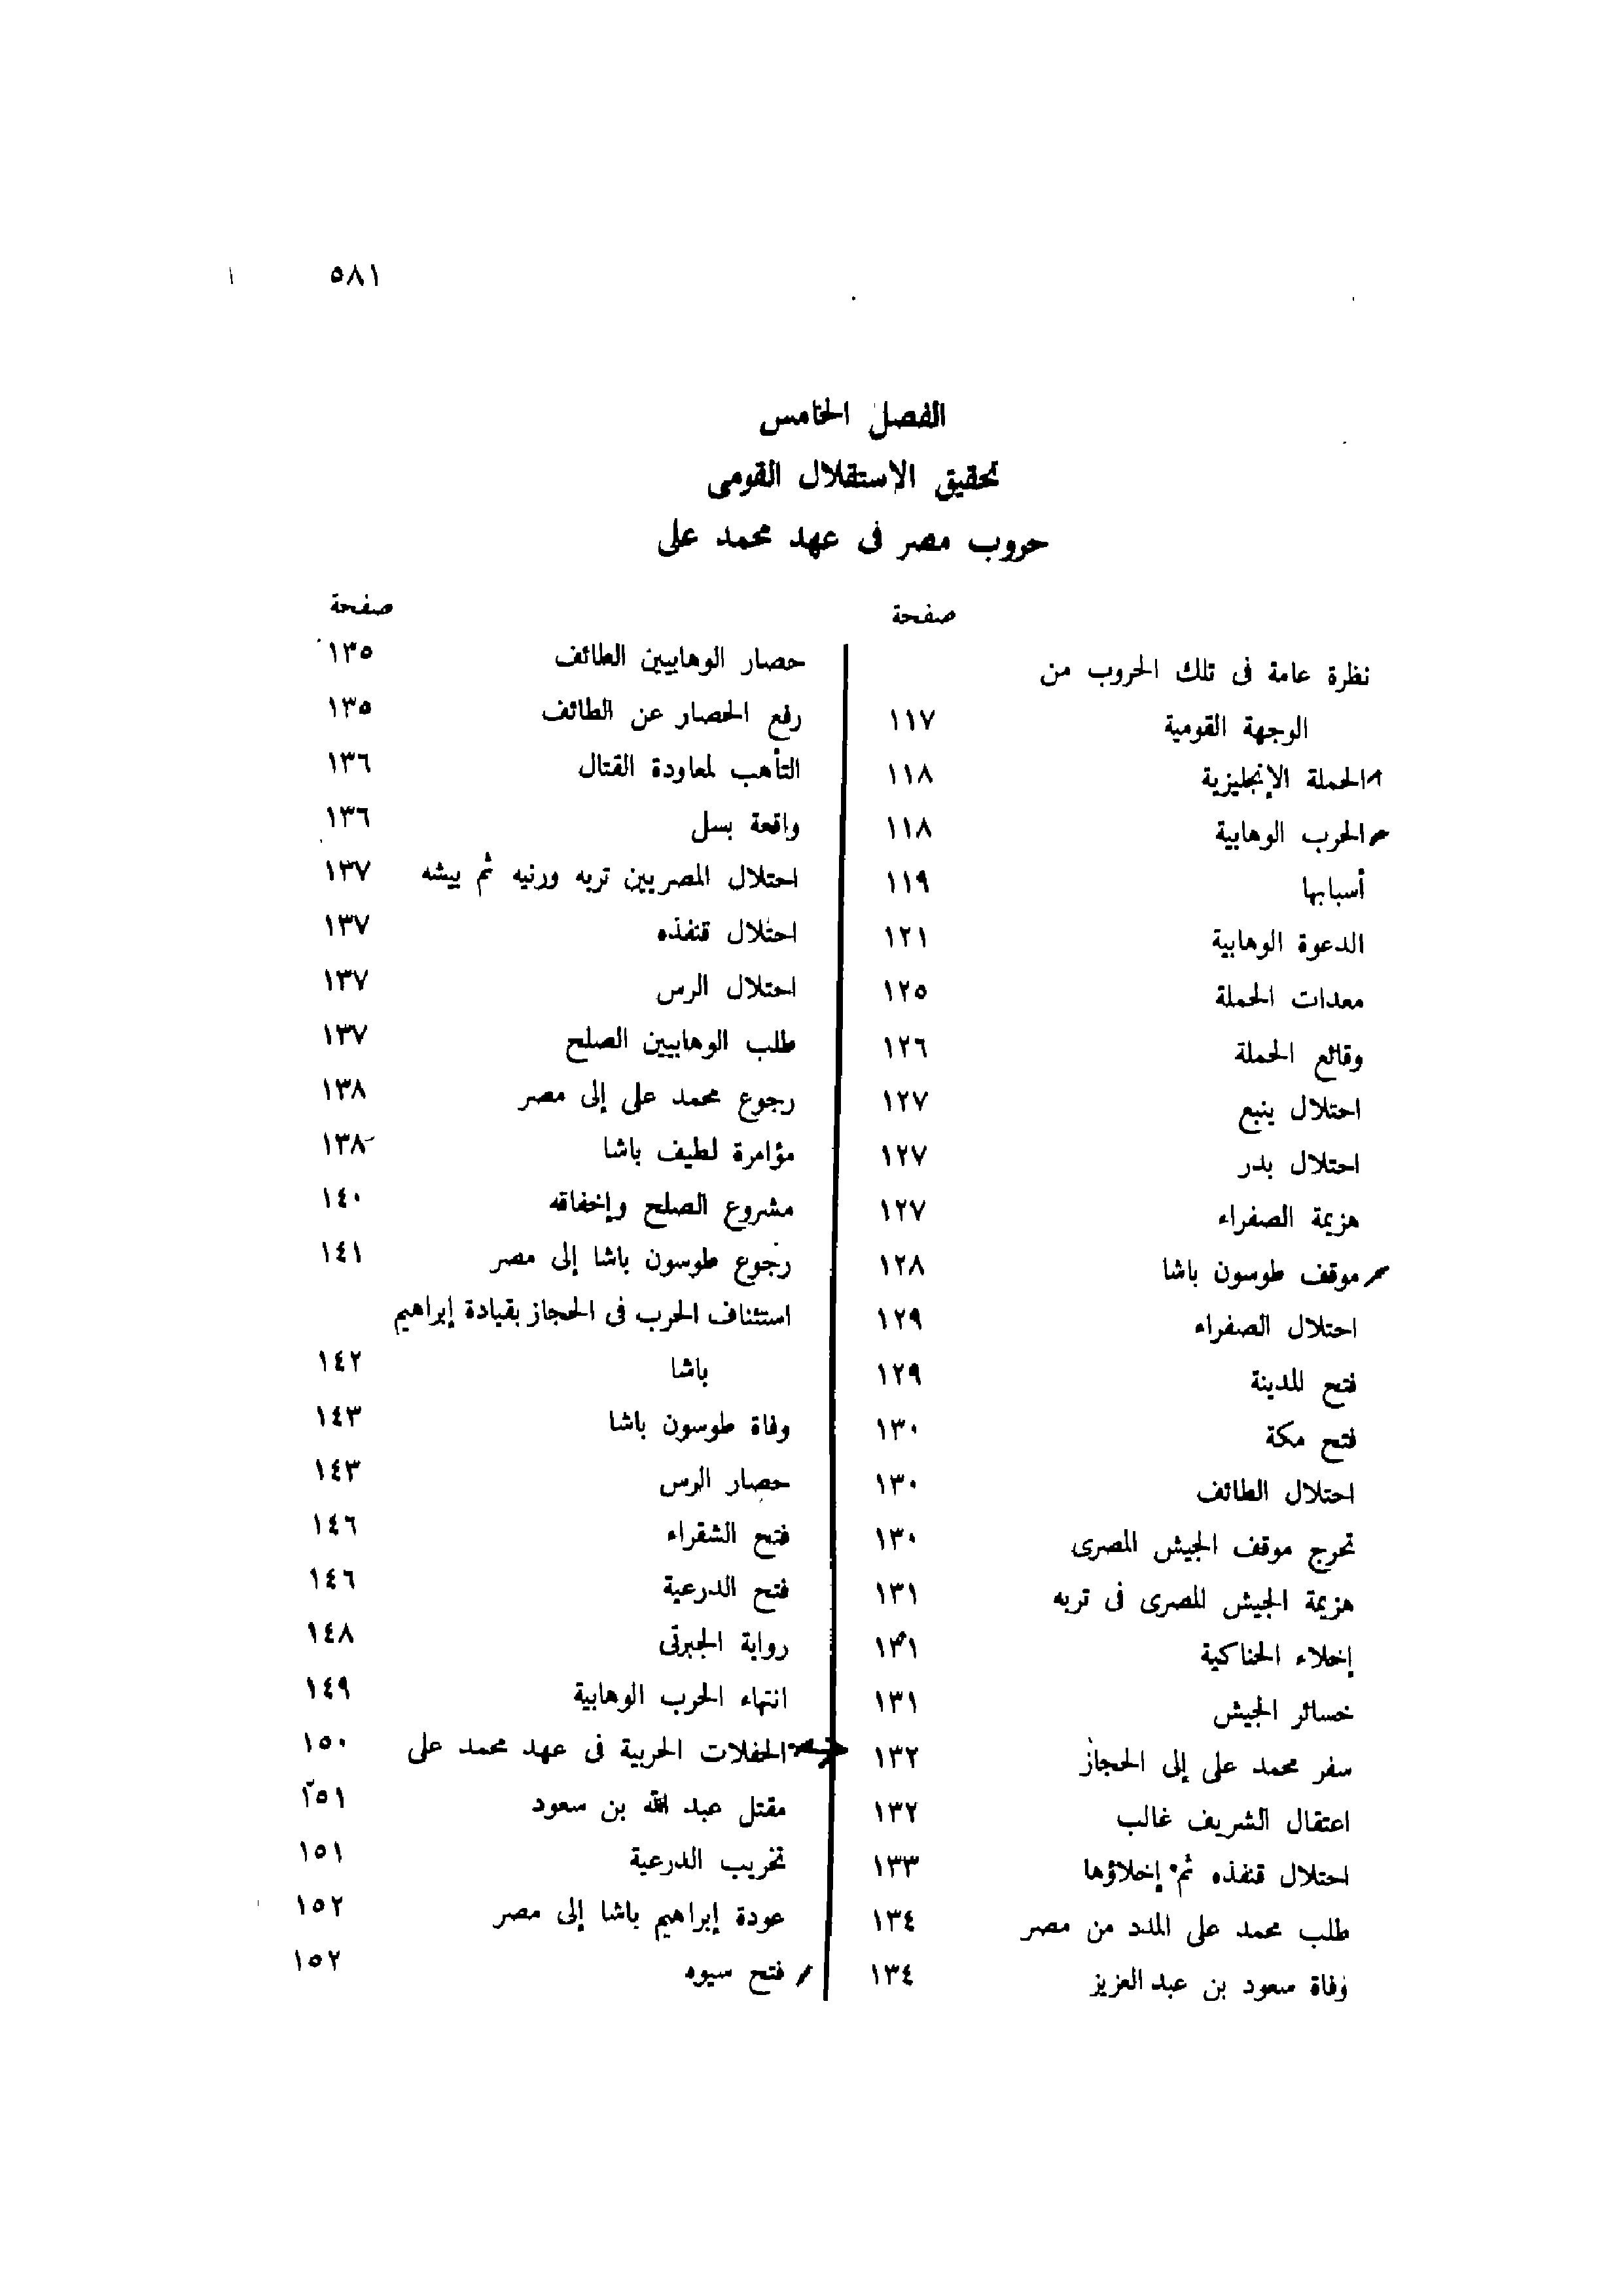 ٥٨١
الفصل الخامس
تحقيق الاستقلال القومى
حروب مصر فى عهد محمد على
صفحة
نظرة عامة فى تلك الحروب من
الوجهة القومية ١١٧
الحملة الإنجليزية ١١٨
الحرب الوهابية ١١٨
أسبابها ١١٩
الدعوة الوهابية ١٢١
معدات الحملة ١٢٥
وقائع الحملة ١٢٦
احتلال ينبع ١٢٧
احتلال بدر ١٢٧
هزيمة الصفراء ١٢٧
موقف طوسون باشا ١٢٨
احتلال الصفراء ١٢٩
فتح المدينة ١٢٩
فتح مكة ١٣٠
احتلال الطائف ١٣٠
تحرج موقف الجيش المصرى ١٣٠
هزيمة الجيش المصرى فى تربه ١٣١
إخلاء الحناكية ١٣١
خسائر الجيش ١٣١
سفر محمد على إلى الحجاز ١٣٢
اعتقال الشريف غالب ١٣٢
احتلال قنفذه ثم إخلاؤها ١٣٣
طلب محمد على المدد من مصر ١٣٤
وفاة سعود بن عبد العزيز ١٣٤
صفحة
حصار الوهابيين الطائف ١٣٥
رفع الحصار عن الطائف ١٣٥
التأهب لمعاودة القتال ١٣٦
واقعة بسل ١٣٦
احتلال المصريين تربه ورنيه ثم بيشه ١٣٧
احتلال قنفذه ١٣٧
احتلال الرس ١٣٧
طلب الوهابيين الصلح ١٣٧
رجوع محمد على إلى مصر ١٣٨
مؤامرة لطيف باشا ١٣٨
مشروع الصلح وإخفاقه ١٤٠
رجوع طوسون باشا إلى مصر ١٤١
استئناف الحرب فى الحجاز بقيادة إبراهيم
باشا ١٤٢
وفاة طوسون باشا ١٤٣
حصار الرس ١٤٣
فتح الشقراء ١٤٦
فتح الدرعية ١٤٦
رواية الجبرتى ١٤٨
انتهاء الحرب الوهابية ١٤٩
الحفلات الحربية فى عهد محمد على ١٥٠
مقتل عبد الله بن سعود ١٥١
تخريب الدرعية ١٥١
عودة إبراهيم باشا إلى مصر ١٥٢
فتح سيوه ١٥٢